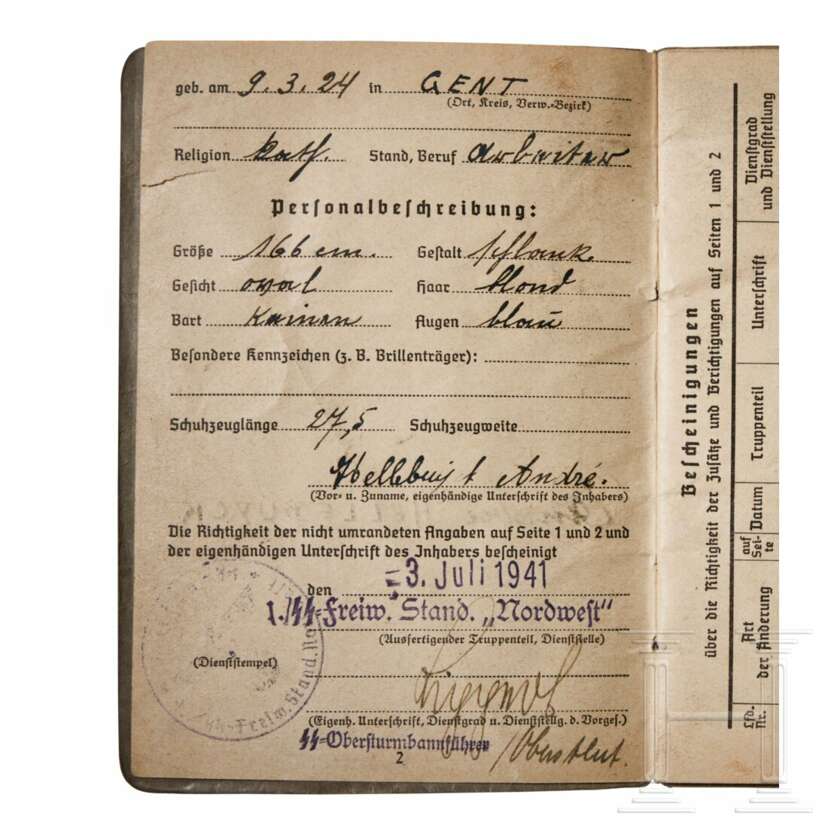 geb. am 9.3.24 in GENT
(Ort, Kreis, Verw.-Bezirk)
Religion kath. Stand, Beruf Arbeiter
Personalbeschreibung:
Größe 166 cm. Gestalt schlank.
Gesicht oval Haar blond
Bart Keinen Augen blau
Besondere Kennzeichen (z. B. Brillenträger):
Schuhzeuglänge 27,5 Schuhzeugweite
André.
(Vor- u. Zuname, eigenhändige Unterschrift des Inhabers)
Die Richtigkeit der nicht umrandeten Angaben auf Seite 1 und 2 und
der eigenhändigen Unterschrift des Inhabers bescheinigt
den 3. Juli 1941
1./SS-Freiw. Stand. „Nordwest"
(Ausfertigender Truppenteil, Dienststelle)
(Dienststempel)
SS-Freiw. Stand. No
(Eigenh. Unterschrift, Dienstgrad u. Dienststllg. d. Vorges.)
SS-Obersturmbannführer / Oberstlut.
2
Bescheinigungen
über die Richtigkeit der Zusätze und Berichtigungen auf Seiten 1 und 2
Lfd. Nr.
Art der Änderung
auf Sei- te
Datum
Truppenteil
Unterschrift
Dienstgrad und Dienststellung